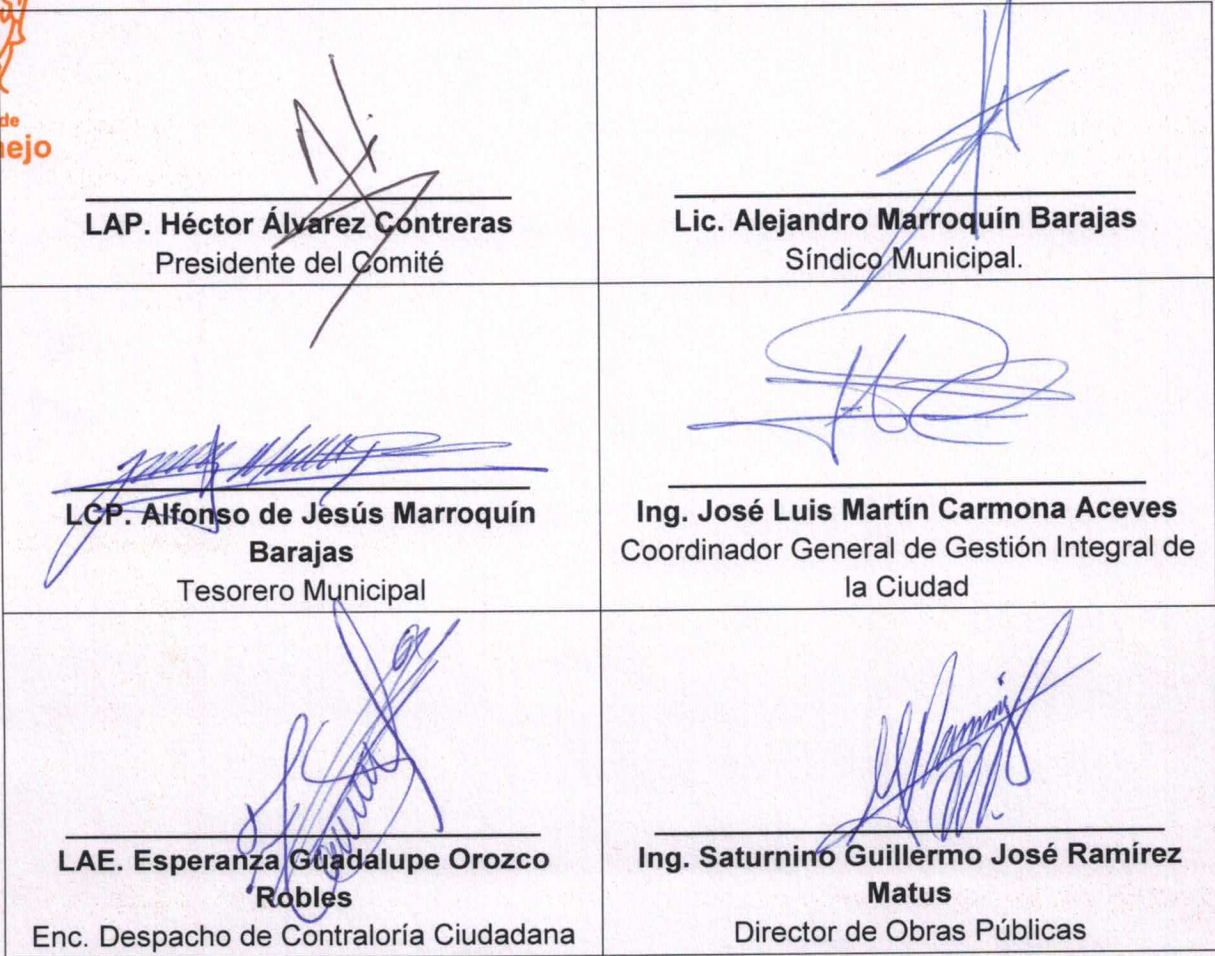 de
nejo
LAP. Héctor Álvarez Contreras
Presidente del Comité
Lic. Alejandro Marroquín Barajas
Síndico Municipal.
LCP. Alfonso de Jesús Marroquín
Barajas
Tesorero Municipal
Ing. José Luis Martín Carmona Aceves
Coordinador General de Gestión Integral de
la Ciudad
LAE. Esperanza Guadalupe Orozco
Robles
Enc. Despacho de Contraloría Ciudadana
Ing. Saturnino Guillermo José Ramírez
Matus
Director de Obras Públicas